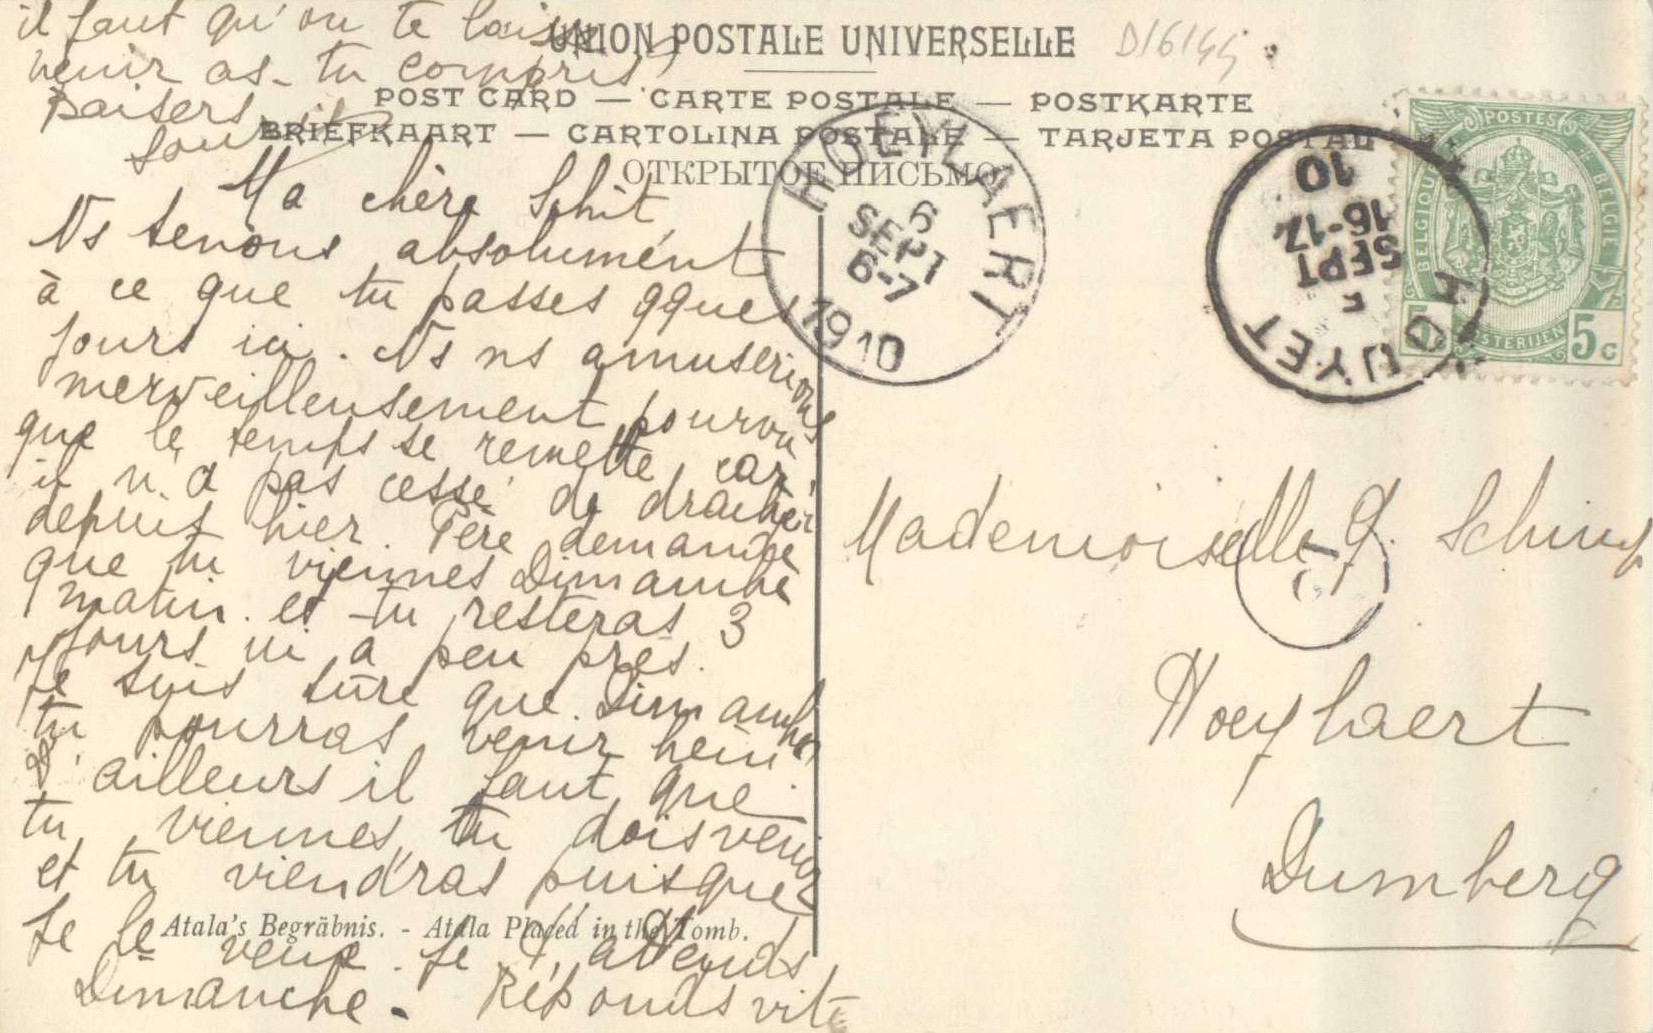 il faut qu'on te laisse
venir as-tu compris,
Baisers
UNION POSTALE UNIVERSELLE
D/6144
POST CARD — CARTE POSTALE — POSTKARTE
BRIEFKAART — CARTOLINA POSTALE — TARJETA POSTAL
ОТКРЫТОЕ ПИСЬМО
Ma chère Schit
Ns tenons absolument
à ce que tu passes qques
jours ici. Ns ns amuserions
merveilleusement pourvu
que le temps se remette, car
il n'a pas cessé de dracher
depuis hier. Père demande
que tu viennes Dimanche
matin. et tu resteras 3
jours ici à peu près.
Je suis sûre que Dimanche
tu pourras venir hein!
D'ailleurs il faut que
tu viennes, tu dois venir
et tu viendras puisque
je le veux. Je t'attends
Dimanche. Réponds vite
Atala's Begräbnis. - Atala Placed in the Tomb.
HOEYLAERT
6
SEPT
6-7
1910
HOUYET
5
SEPT
16-17
10
POSTES
BELGIQUE
BELGIE
POSTERIJEN
5c
Mademoiselle
Hoeylaert
Dumberg